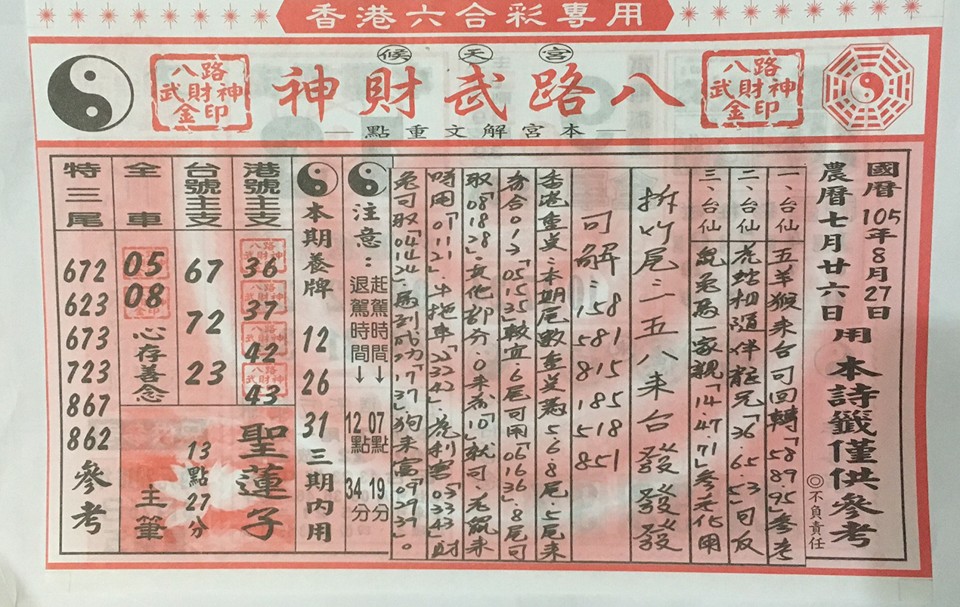 香港六合彩專用
候天宮
八路武財神
八路武財神金印
八路武財神金印
本宮解文重點
國曆105年8月27日
農曆七月廿六日
用本詩籤僅供參考
◎不負責任
一、台仙 五羊猴來台可回轉「58.89.95」參考
二、台仙 老蛇相隨伴龍兄「36.65.53」可反
三、台仙 鼠兔馬一家親「14.47.71」參老化用
拆竹尾二五八來台發發發
可解：158
581
815
185
518
851
香港重點：本期尾數重點為5.6.8尾.5尾來
夯合013「05.15.35」較宜.6尾可用「06.16.36」.8尾可
取「08.18.28」.變化部分.0來為「10」就可.老鼠來
時用「01.11.21」.牛拖車「22.32.42」.虎利害「03.33.43」財
兔可取「04.14.24」.馬到成功「17.37」狗來富「09.29.39」。
注意：
起駕時間↓07點19分
退駕時間↓12點34分
本期養牌 12 26 31 三期內用
港號主支
36
37
42
43
台號主支
67
72
23
全車
05
08
心存善念
特三尾
672
623
673
723
867
862
參考
聖蓮子
13點27分
主筆